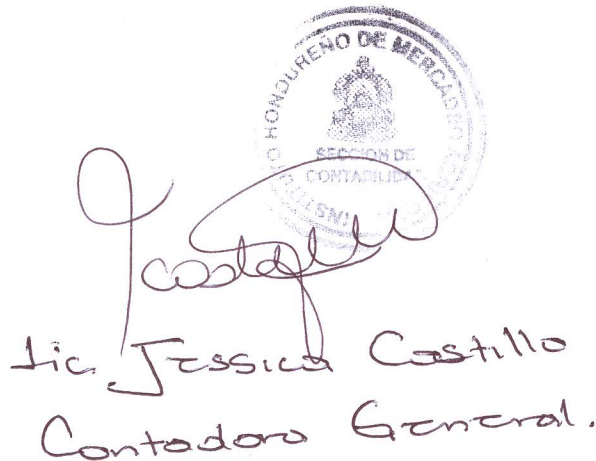 INSTITUTO HONDUREÑO DE MERCADEO
SECCION DE
CONTABILIDAD
Lic. Jessica Castillo
Contadora General.